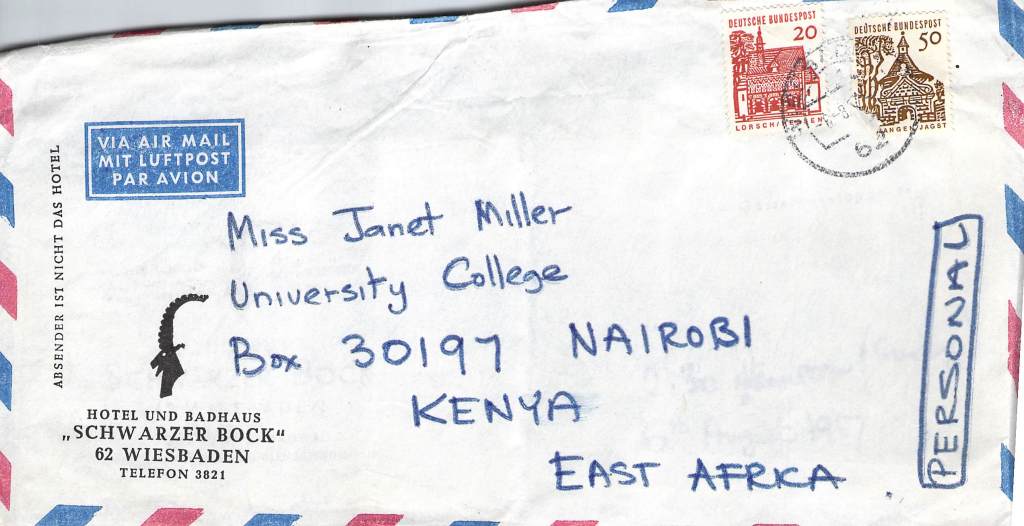 DEUTSCHE BUNDESPOST
20
LORSCH/HESSEN
DEUTSCHE BUNDESPOST
50
VIA AIR MAIL
MIT LUFTPOST
PAR AVION
ABSENDER IST NICHT DAS HOTEL
Miss Janet Miller
University College
Box 30197 NAIROBI
KENYA
EAST AFRICA
PERSONAL
HOTEL UND BADHAUS
„SCHWARZER BOCK“
62 WIESBADEN
TELEFON 3821